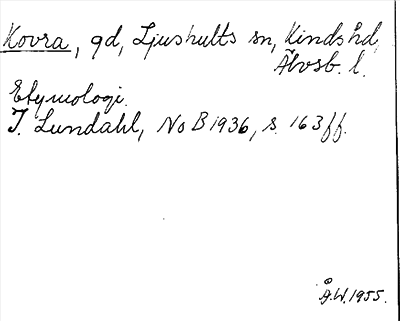 Kovra, gd, Ljushults sn, Kinds hd,
Älvsb. l.
Etymologi.
I. Lundahl, NoB 1936, s. 163 ff.
Å.W. 1955.